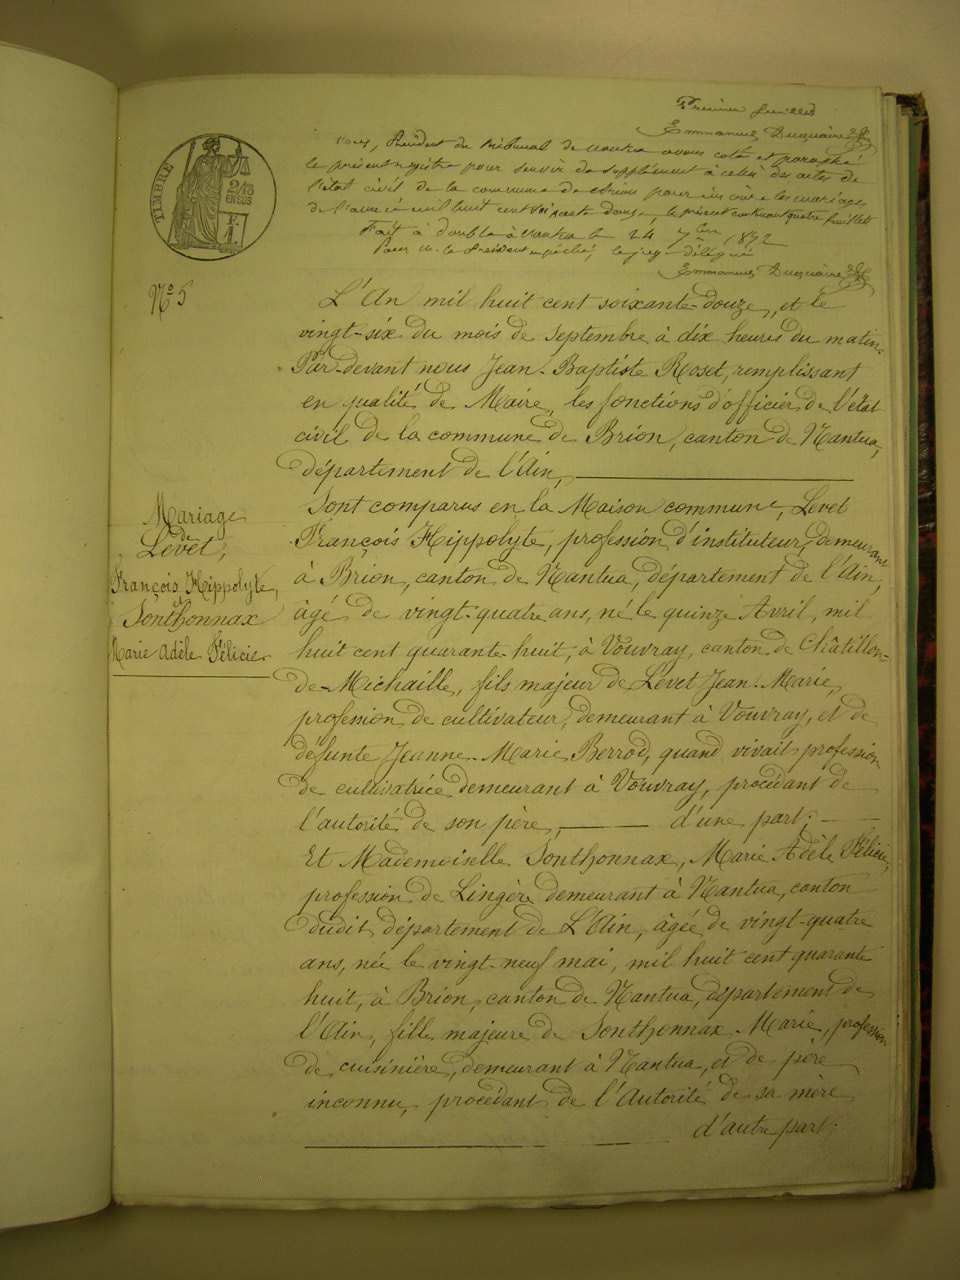 Premier feuillet
Emmanuel Duquaire
Nous, Président du tribunal de nantua avons coté et paraphé
le présent registre pour servir de supplément à celui des actes de
l'état civil de la commune de Brion pour inscrire les mariages
de l'année mil huit cent soixante douze, le présent contenant quatre feuillets
Fait à double à nantua le 24 7bre 1872
Pour M. le Président empêché, le juge délégué
Emmanuel Duquaire
TIMBRE
2/10
EN SUS
No 5
L'An mil huit cent soixante-douze, et le
vingt-six du mois de Septembre à dix heures du matin
Par-devant nous Jean-Baptiste Roset, remplissant
en qualité de Maire, les fonctions d'officier de l'état
civil de la commune de Brion, canton de Nantua,
département de l'Ain,
Sont comparus en la Maison commune, Levet
François Hippolyte, profession d'instituteur, demeurant
à Brion, canton de Nantua, département de l'Ain,
âgé de vingt-quatre ans, né le quinze Avril, mil
huit cent quarante-huit, à Vouvray, canton de Châtillon-
de-Michaille, fils majeur de Levet Jean-Marie,
profession de cultivateur, demeurant à Vouvray, et de
défunte Jeanne-Marie Berrod, quand vivait profession
de cultivatrice demeurant à Vouvray, procédant de
l'autorité de son père, d'une part;
Et Mademoiselle Sonthonnax, Marie Adèle Félicie,
profession de Lingère demeurant à Nantua, canton
dudit, département de L'Ain, âgée de vingt-quatre
ans, née le vingt-neuf mai, mil huit cent quarante
huit, à Brion, canton de Nantua, département de
l'Ain, fille majeure de Sonthonnax Marie, profession
de cuisinière, demeurant à Nantua, et de père
inconnu, procédant de l'Autorité de sa mère
d'autre part.
Mariage
de
Levet,
François Hippolyte,
et
Sonthonnax
Marie Adèle Félicie